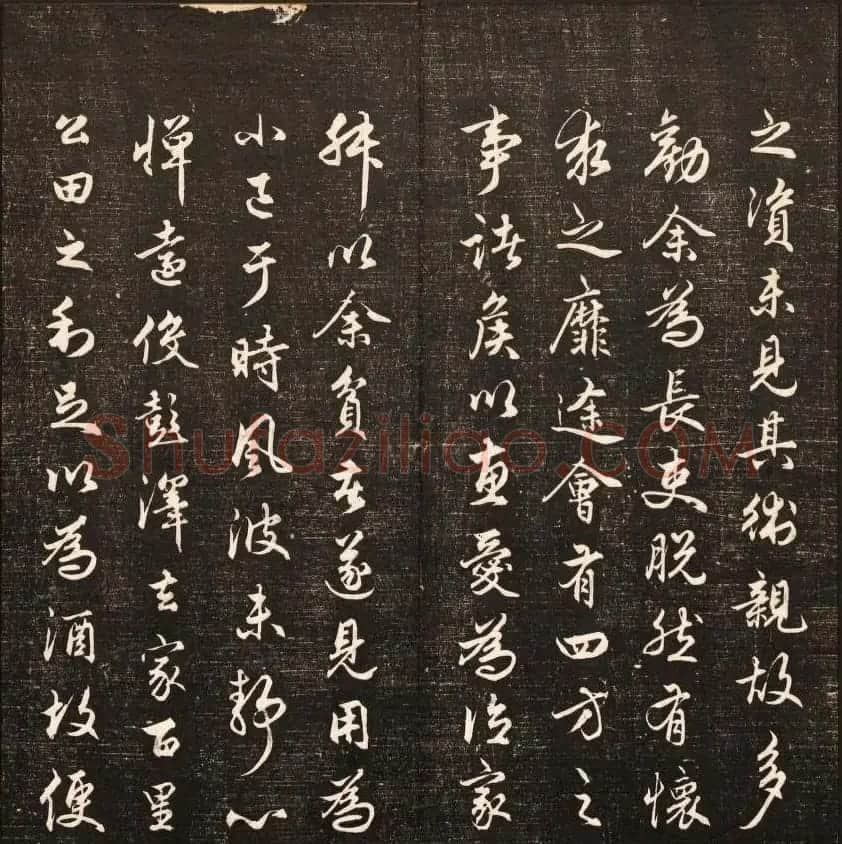 之資未見其術親故多
勸余為長吏脫然有懷
求之靡途會有四方之
事諸侯以惠愛為德家
叔以余貧苦遂見用為
小邑于時風波未靜心
憚遠役彭澤去家百里
公田之利足以為酒故便
Shufaziliao.COM